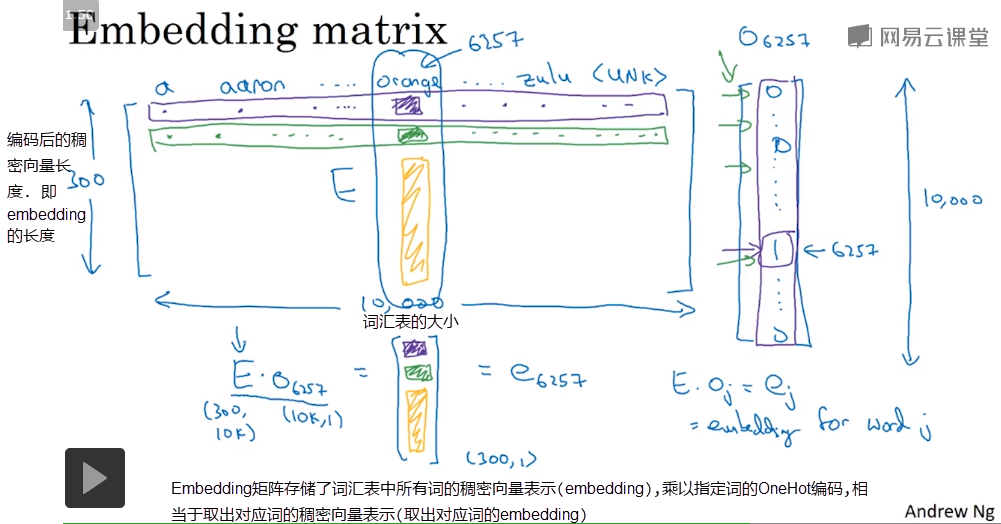 1.50
Embedding matrix
网易云课堂
6257
O6257
a aaron ..... orange ..... zulu <UNK>
编码后的稠
密向量长
300
度．即
embedding
的长度
E
0
0
1
← 6257
0
10,000
10,000
词汇表的大小
E · O6257 = = e6257
(300, 10K) (10K,1)
(300,1)
E · Oj = ej
= embedding for word j
Embedding矩阵存储了词汇表中所有词的稠密向量表示(embedding),乘以指定词的OneHot编码,相
当于取出对应词的稠密向量表示(取出对应词的embedding)
Andrew Ng